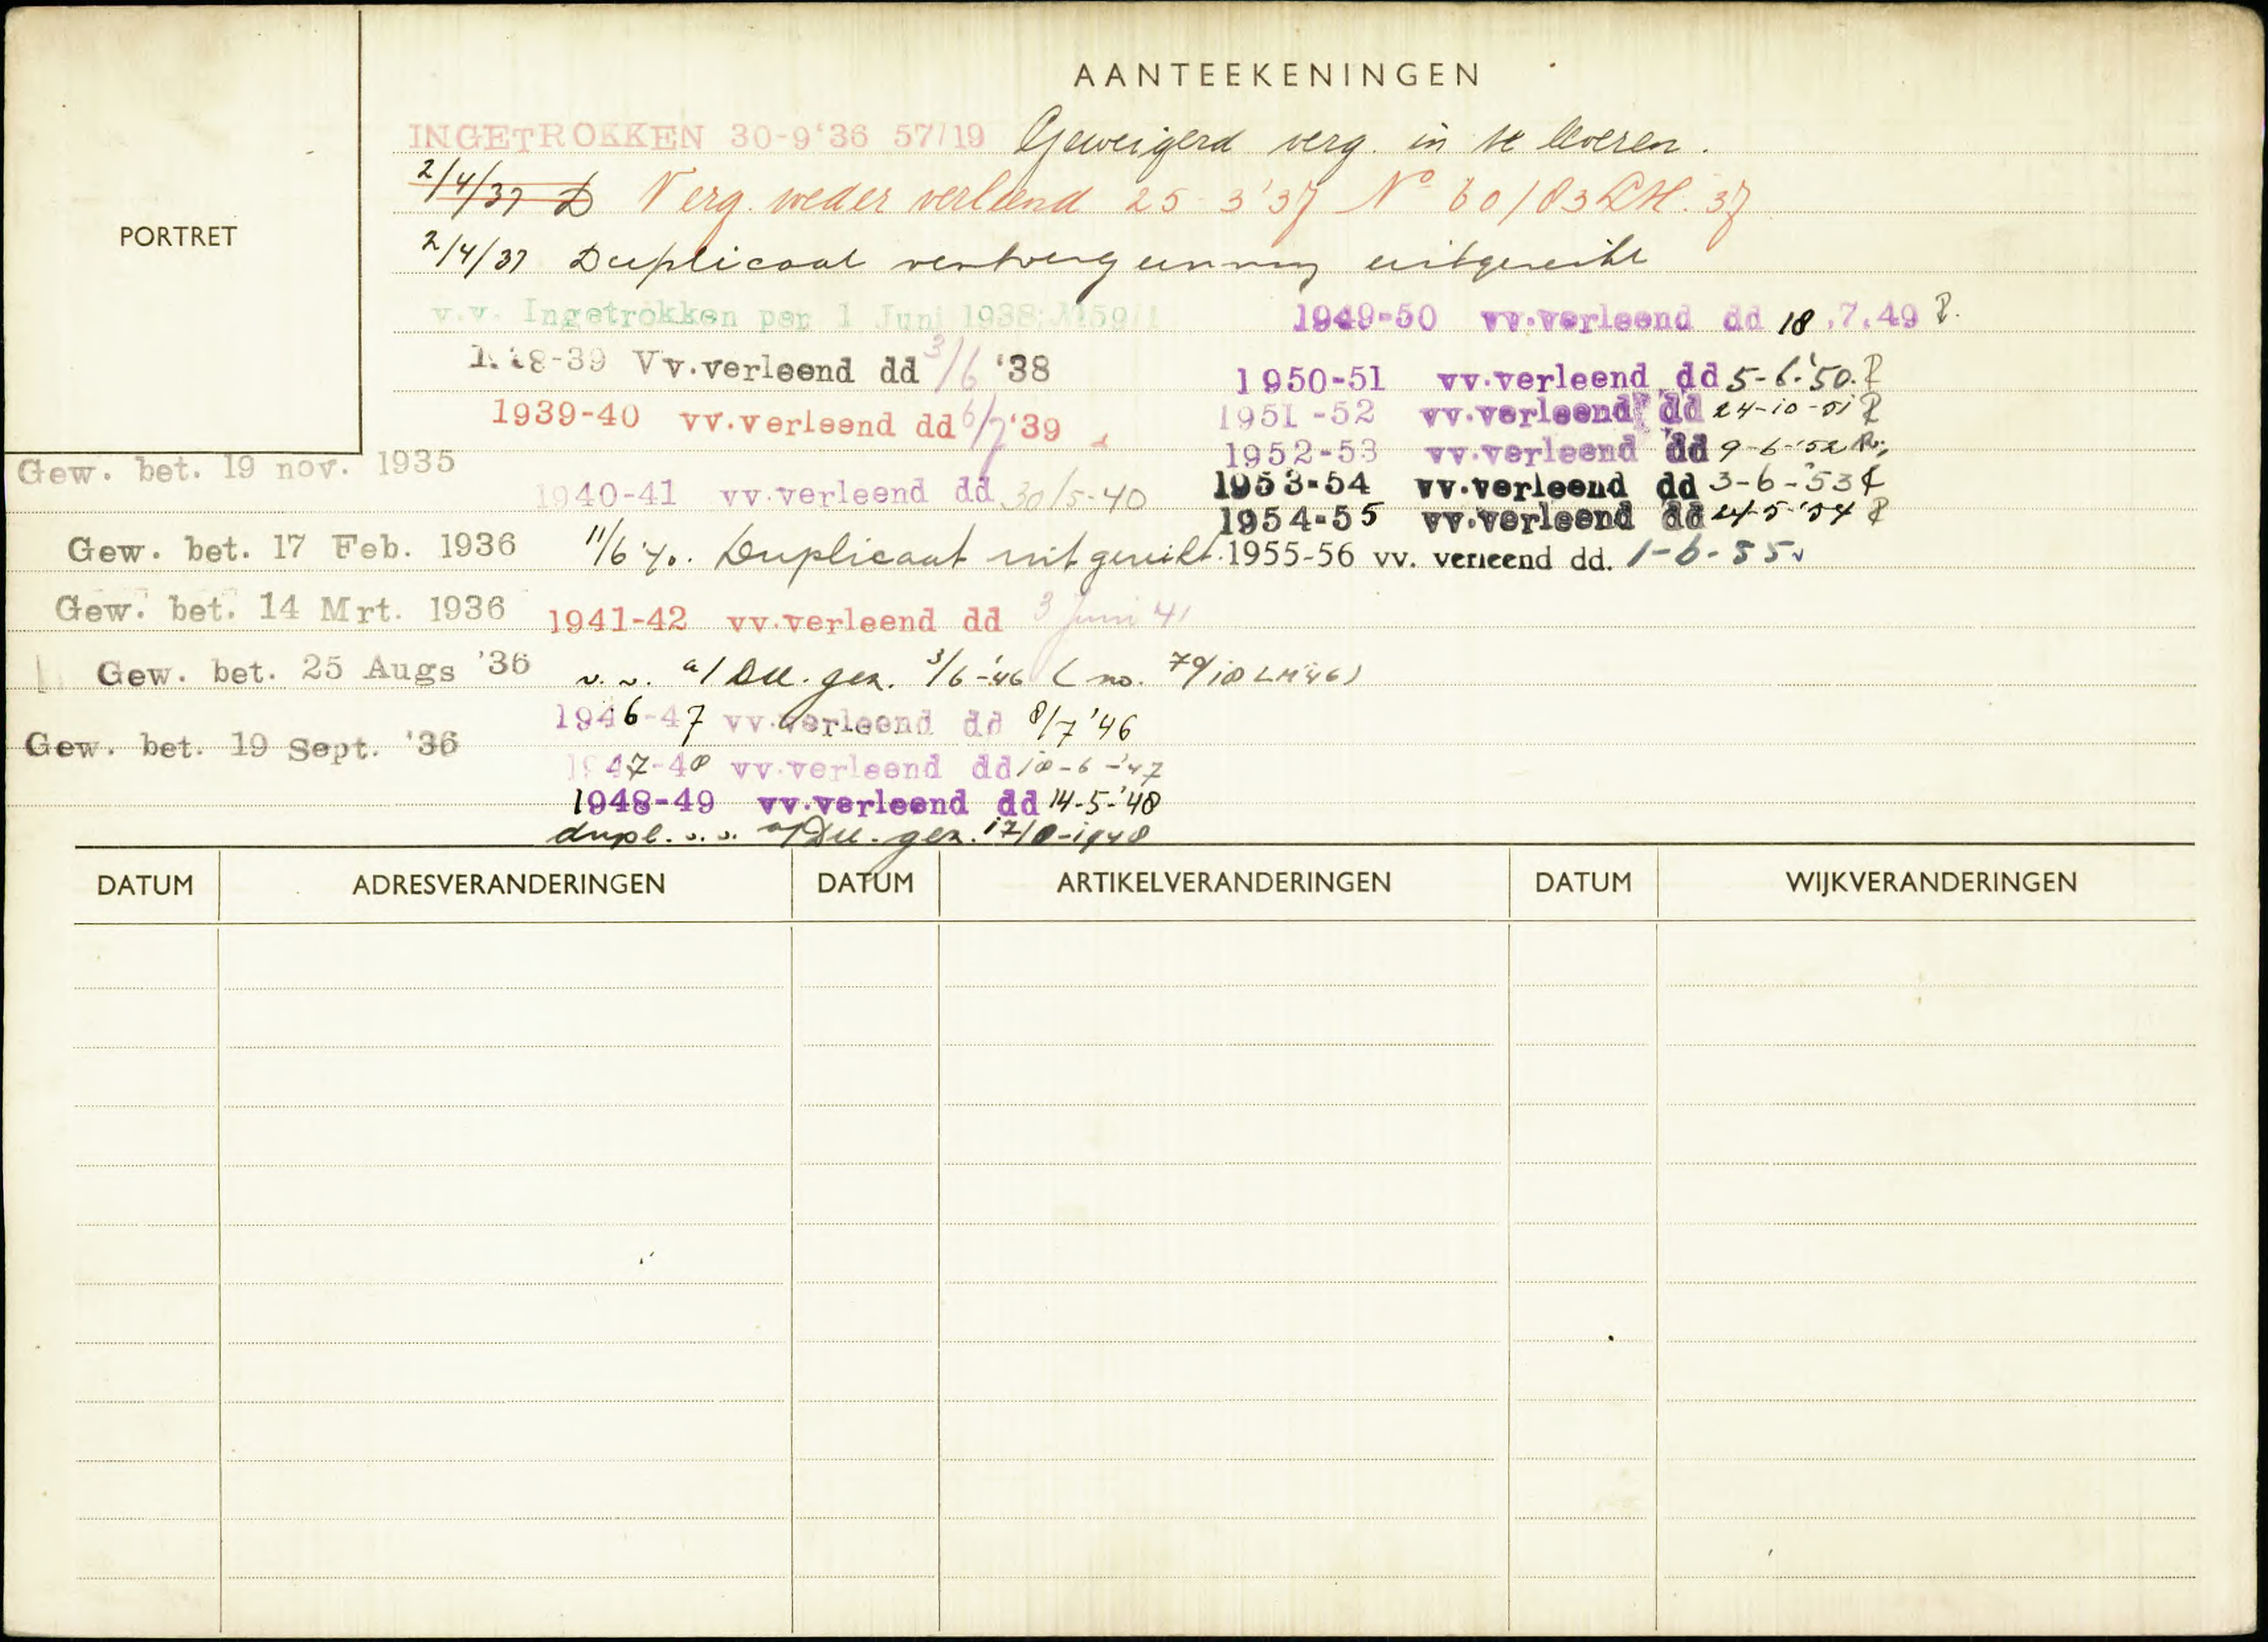 AANTEEKENINGEN
PORTRET
INGETROKKEN 30-9'36 57/19 Geweigerd verg. in te leveren.
2/4/37 D Verg. weder verleend 25-3'37 No 60/83 LM. 37
2/4/37 Duplicaat ventvergunning uitgereikt
v.v. Ingetrokken per 1 Juni 1938
18-39 Vv.verleend dd 3/6 '38
1939-40 vv.verleend dd 6/7 '39
1940-41 vv.verleend dd 30/5-40
11/6 '40. Duplicaat uitgereikt.
1941-42 vv.verleend dd 3 Juni 41
v.v. a/ Dll. gez. 3/6-'46 (no. 70/18 LM'46)
1946-47 vv.verleend dd 8/7 '46
1947-48 vv.verleend dd 18-6-'47
1948-49 vv.verleend dd 14-5-'48
dupl. v.v. a/Dll. gez. 17/8-1948
1949-50 vv.verleend dd 18.7.49 P.
1950-51 vv.verleend dd 5-6-'50. P
1951-52 vv.verleend dd 24-10-51 P
1952-53 vv.verleend dd 9-6-'52
1953-54 vv.verleend dd 3-6-'53
1954-55 vv.verleend dd 24-5-'54 P
1955-56 vv. verleend dd. 1-6-55
Gew. bet. 19 nov. 1935
Gew. bet. 17 Feb. 1936
Gew. bet. 14 Mrt. 1936
Gew. bet. 25 Augs '36
Gew. bet. 19 Sept. '36
DATUM ADRESVERANDERINGEN DATUM ARTIKELVERANDERINGEN DATUM WIJKVERANDERINGEN